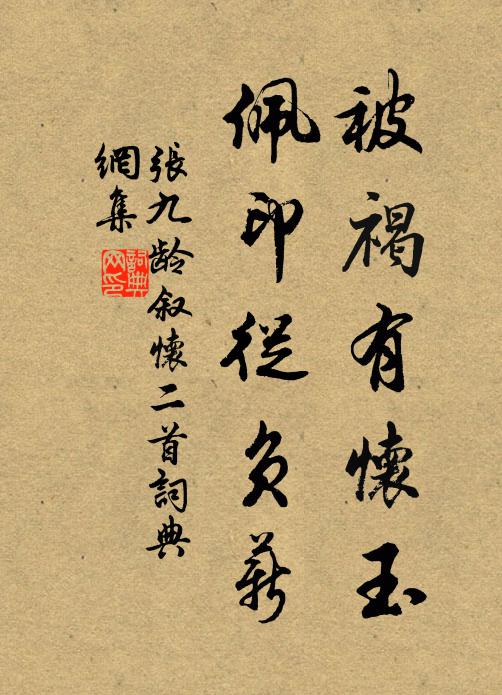 被褐有懷玉
佩印從負薪
張九齡叙懷二首詞典
網集
詞典網印